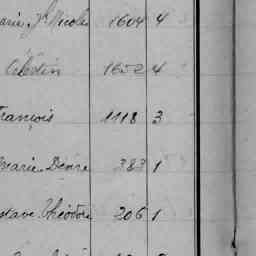 arie Jh Nicolas 1604 4
Célestin 1652 4
rançois 1118 3
Marie Désiré 383 1
stave Théodore 206 1